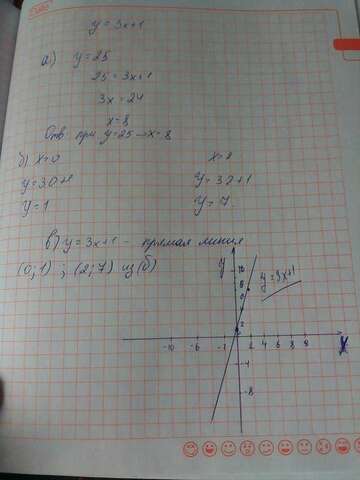 y = 3x+1
а) y = 25
25 = 3x+1
3x = 24
x = 8
Отв при y=25 → x = 8
б) x = 0
y = 3·0+1
y = 1
x = 2
y = 3·2+1
y = 7
в) y = 3x+1 - прямая линия
(0;1) ; (2;7) из (б)
y
y = 3x+1
10
8
2
-10 -6 -1 2 4 6 8
x
-4
-8